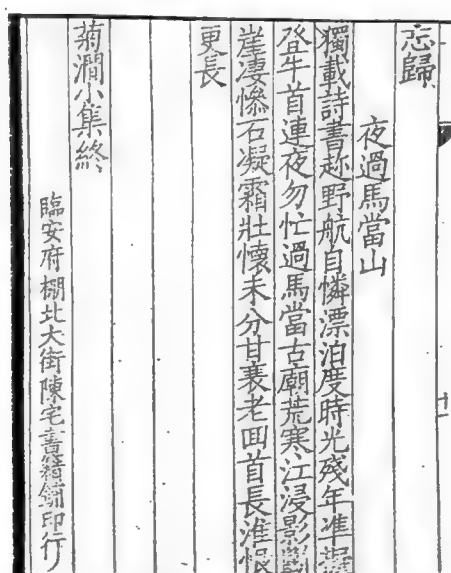 忘歸
夜過馬當山
獨載詩書趂野航自憐漂泊度時光殘年準擬
登牛首連夜匆忙過馬當古廟荒寒江浸影
崖凄慘石凝霜壯懷未分甘衰老回首長淮恨
更長
菊澗小集終
臨安府棚北大街陳宅書籍鋪印行
十一